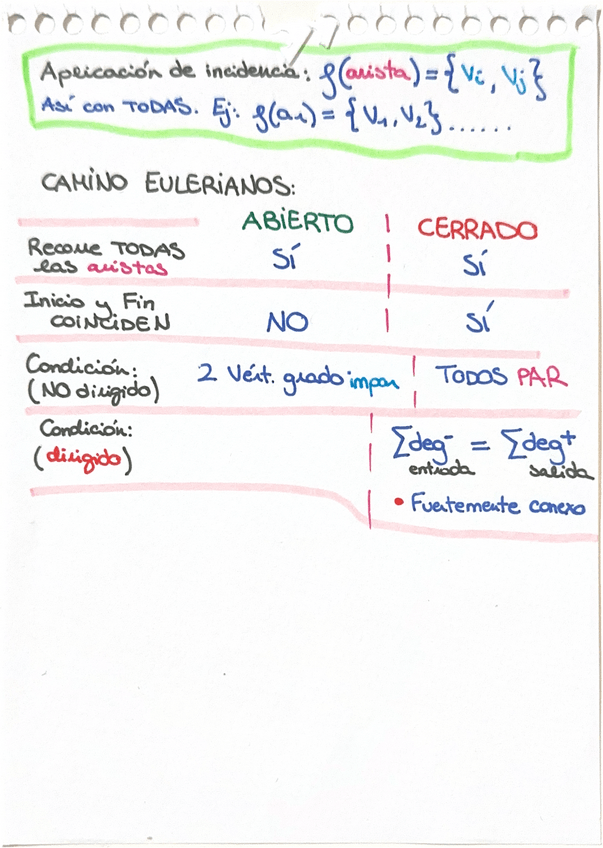 Aplicación de incidencia: f(arista) = {Vi, Vj}
Así con TODAS. Ej: f(a1) = {V1, V2}......
CAMINO EULERIANOS:
ABIERTO CERRADO
Recorre TODAS
las aristas SÍ SÍ
Inicio y Fin
COINCIDEN NO SÍ
Condición:
(NO dirigido) 2 Vért. grado impar TODOS PAR
Condición:
(dirigido) ∑deg⁻ = ∑deg⁺
entrada salida
• Fuertemente conexo